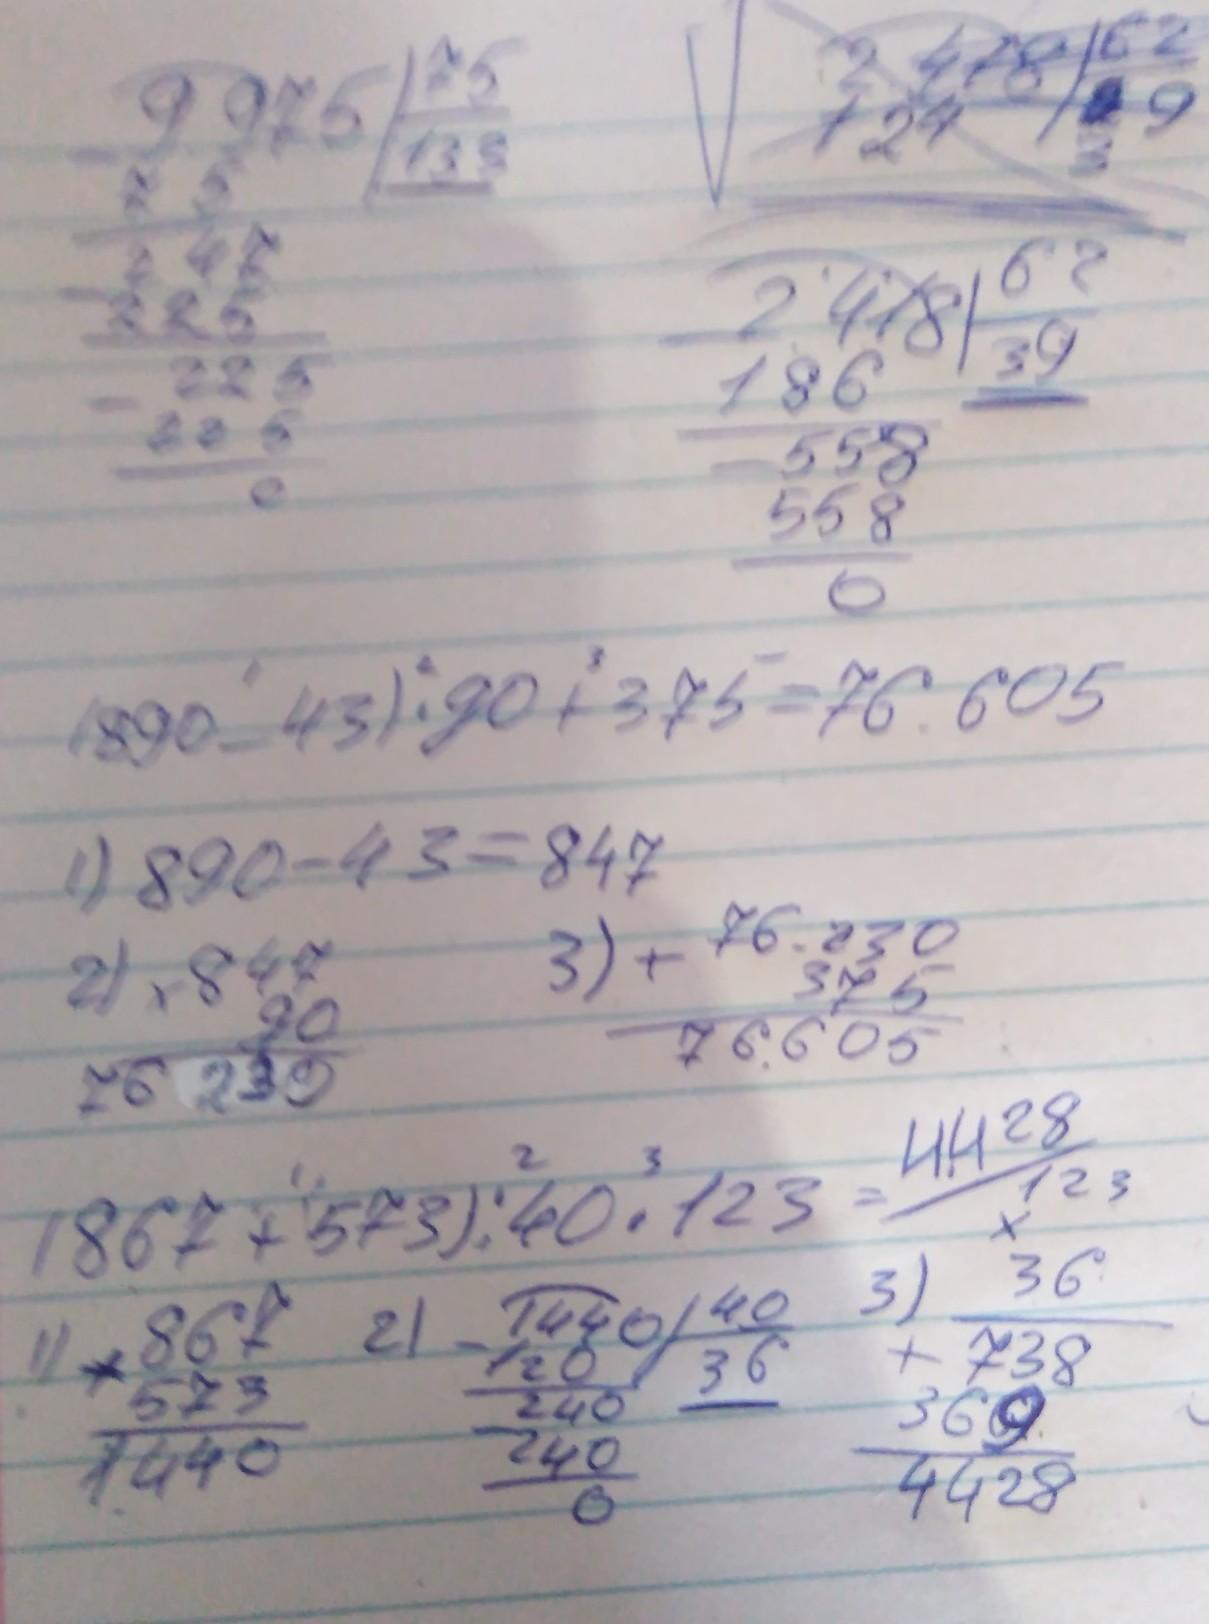 9 975 | 75
133
- 7 5
2 47
- 225
225
- 225
0
2 478 | 62
124 9
3
2 418 | 62
- 39
186
- 558
558
0
(890 - 43) · 90 + 375 = 76.605
1) 890 - 43 = 847
2) x 847
90
76 230
3) + 76.230
375
76.605
(867 + 573) : 40 · 123 = 4428
1) + 867
573
1440
2) - 1440 | 40
120 36
240
- 240
0
3) x 123
36
+ 738
369
4428